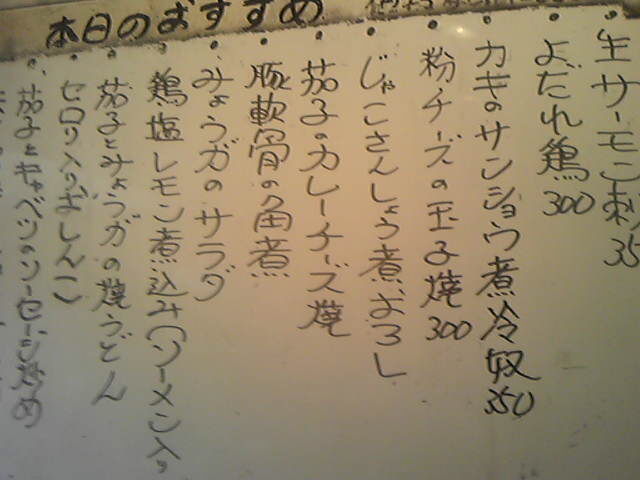 本日のおすすめ
生サーモン刺
35
よだれ鶏 300
カキのサンショウ煮冷奴 350
粉チーズの玉子焼 300
じゃこさんしょう煮おろし
茄子のカレーチーズ焼
豚軟骨の角煮
みょうガのサラダ
鶏塩レモン煮込み(ソーメン入り
茄子とみょうガの焼うどん
セロリ入りおしんこ
茄子とキャベツのソーセージ炒め